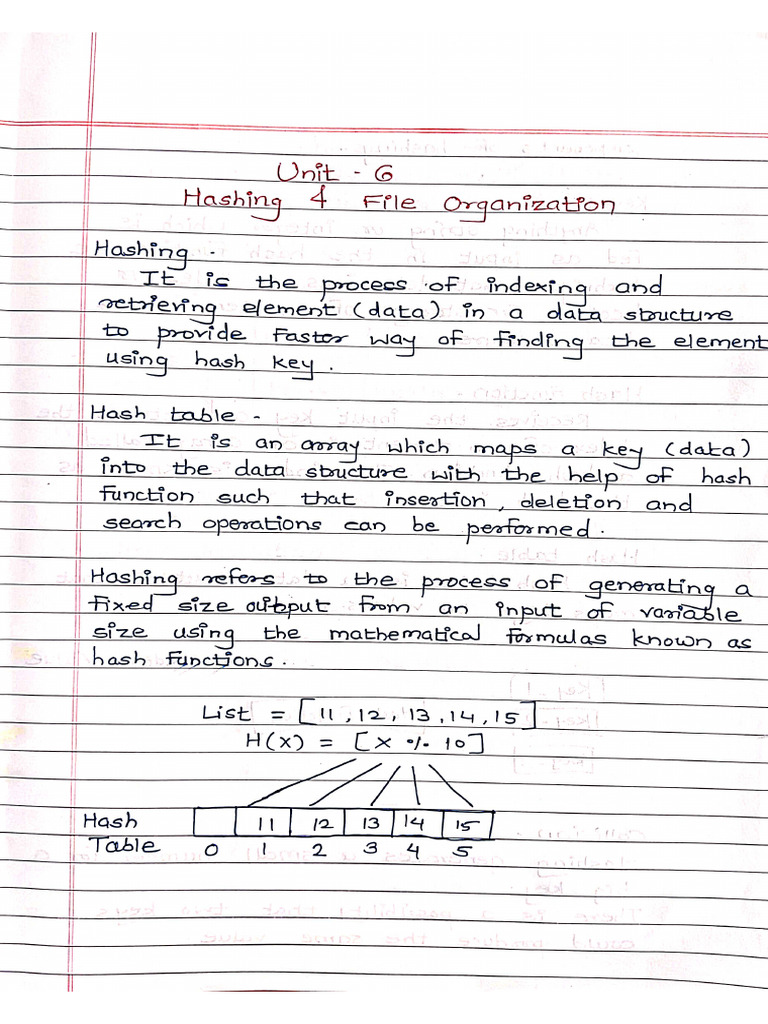 Unit - 6
Hashing & File Organization
Hashing -
It is the process of indexing and
retrieving element (data) in a data structure
to provide faster way of finding the element
using hash key.
Hash table -
It is an array which maps a key (data)
into the data structure with the help of hash
function such that insertion, deletion and
search operations can be performed.
Hashing refers to the process of generating a
fixed size output from an input of variable
size using the mathematical formulas known as
hash functions.
List = [11, 12, 13, 14, 15]
H(x) = [x % 10]
Hash 11 12 13 14 15
Table 0 1 2 3 4 5